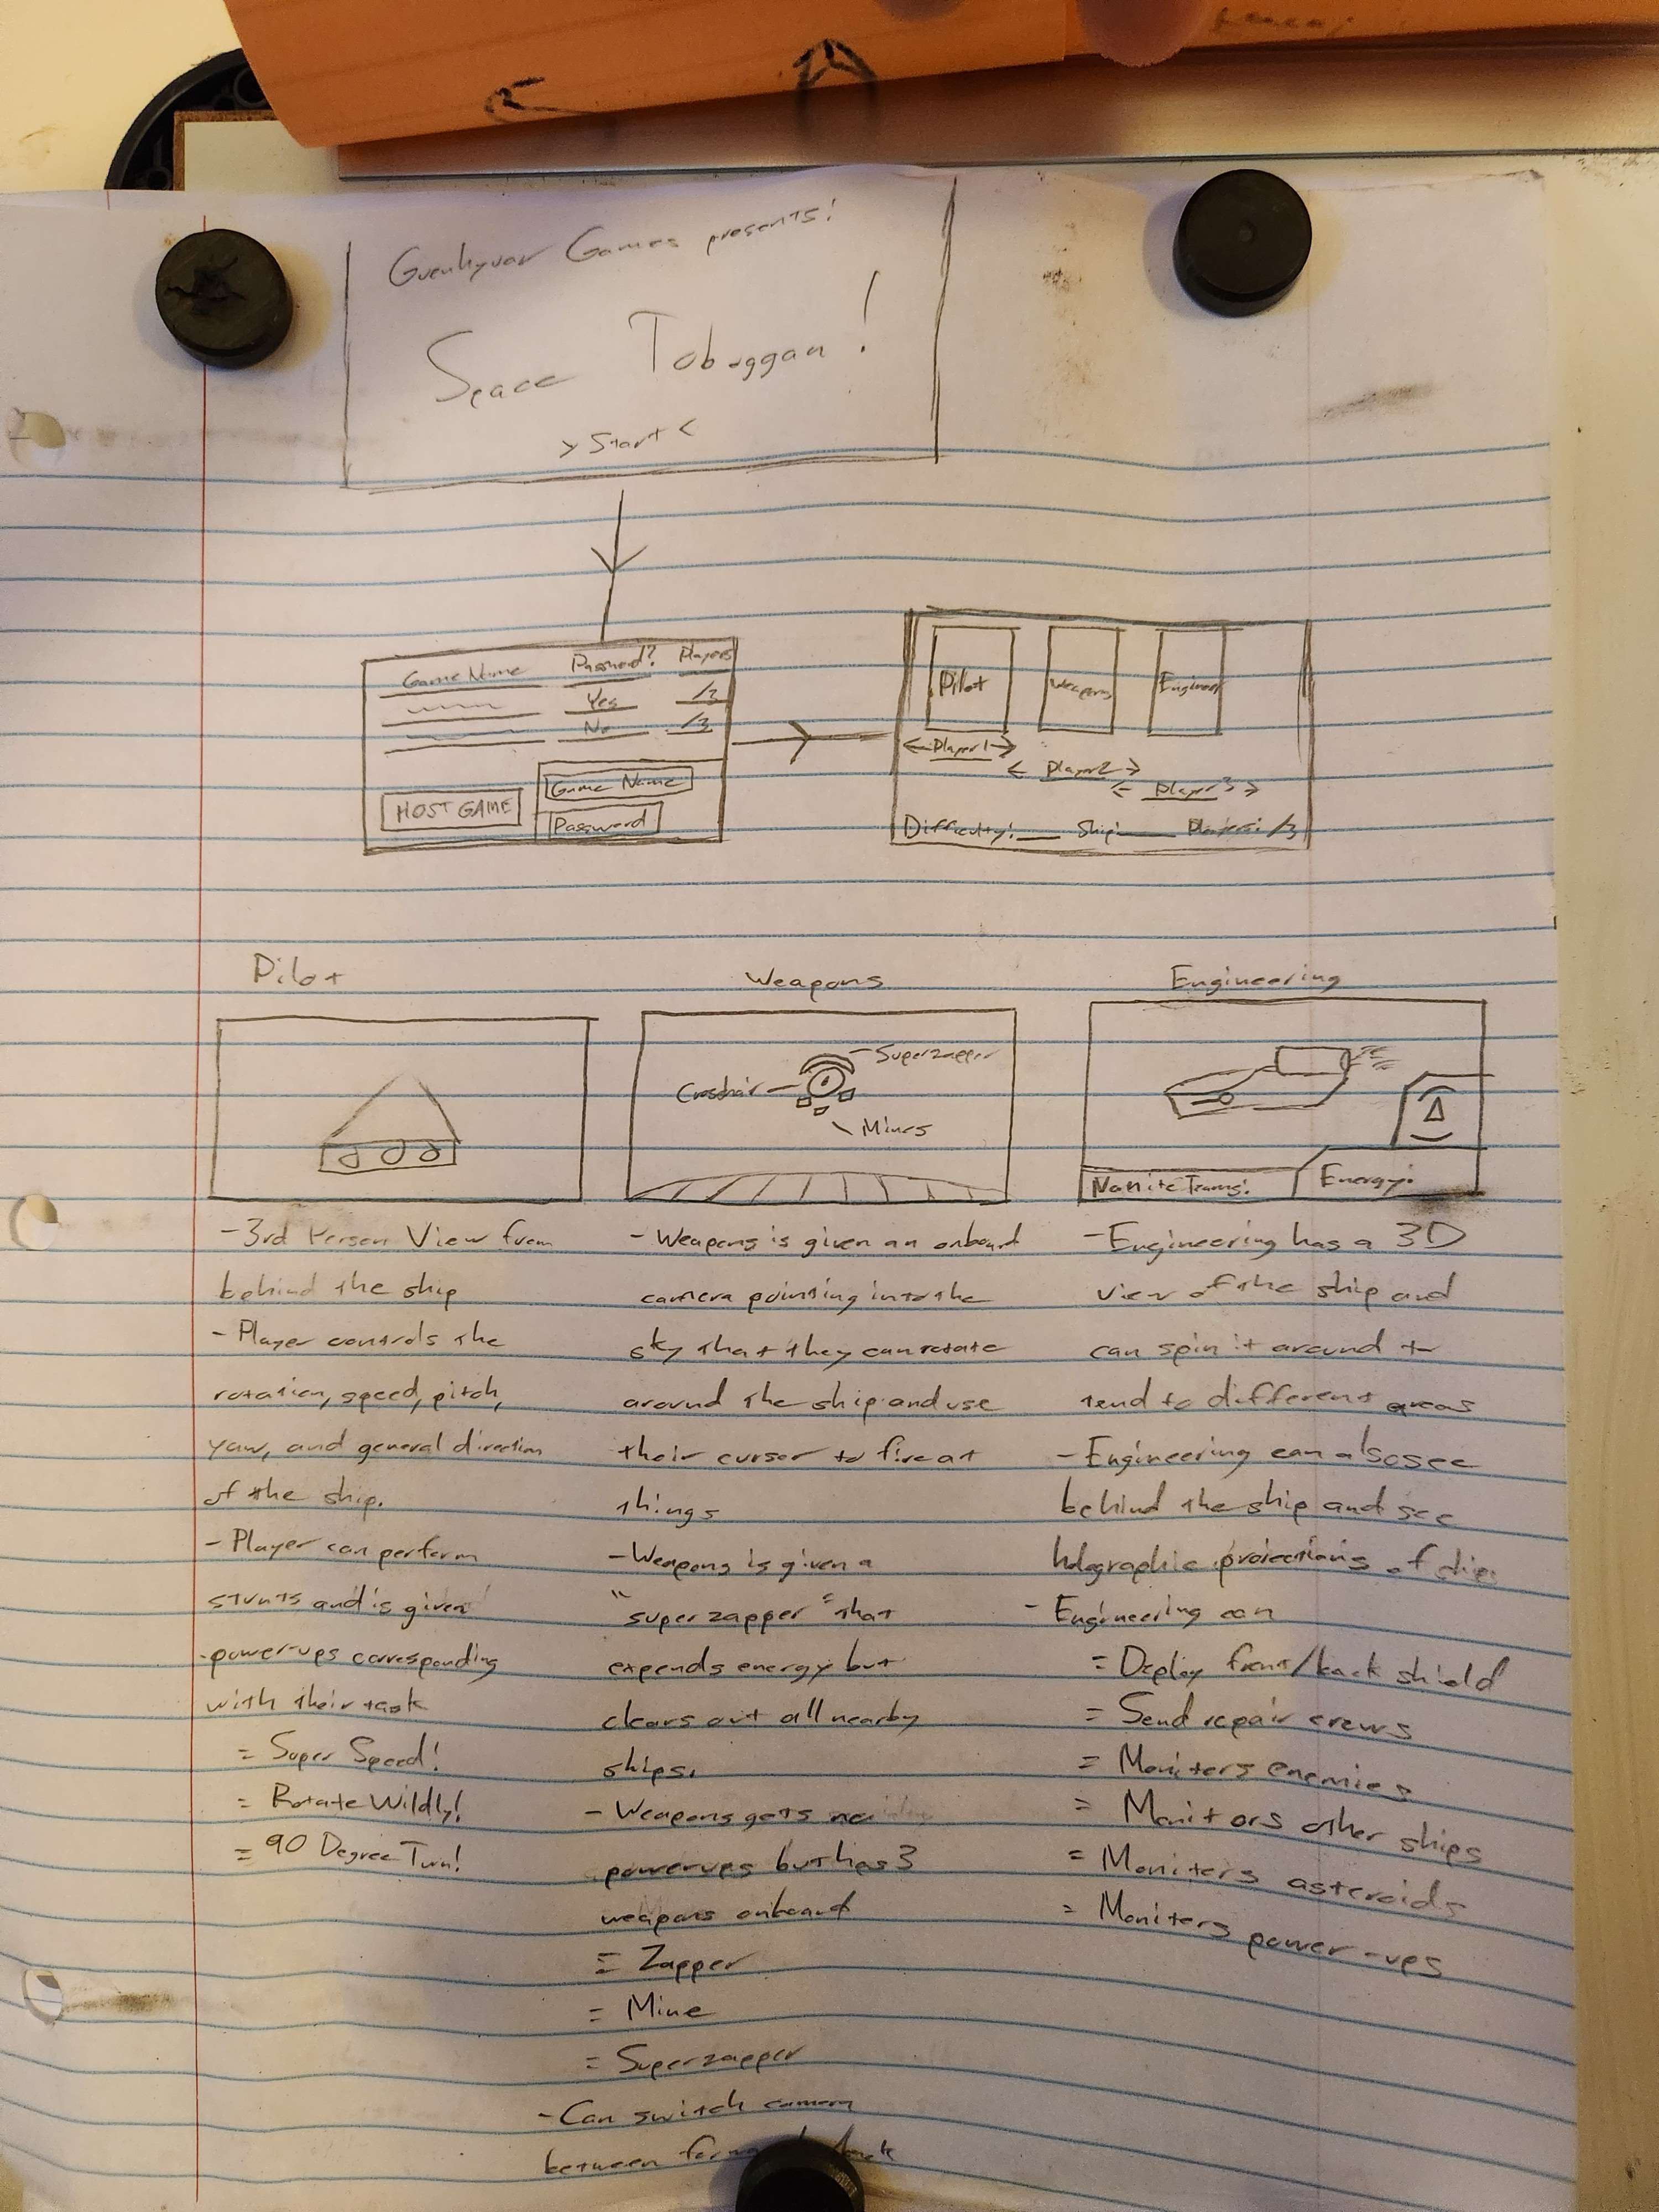 Guenhyvar Games presents!
Space Toboggan!
> Start <
Game Name Password? Players
Yes /3
No /3
HOST GAME
Game Name
Password
Pilot Weapons Engineer
<- Player 1 ->
<- Player 2 ->
<- Player 3 ->
Difficulty: Ship: Players: /3
Pilot
Weapons
Engineering
Superzapper
Crosshair
Mines
Nanite Teams:
Energy:
- 3rd Person View from
behind the ship
- Player controls the
rotation, speed, pitch,
yaw, and general direction
of the ship.
- Player can perform
stunts and is given
power-ups corresponding
with their task
= Super Speed!
= Rotate Wildly!
= 90 Degree Turn!
- Weapons is given an onboard
camera pointing into the
sky that they can rotate
around the ship and use
their cursor to fire at
things
- Weapons is given a
"superzapper" that
expends energy but
clears out all nearby
ships.
- Weapons gets no
powerups but has 3
weapons onboard
= Zapper
= Mine
= Superzapper
- Can switch camera
between
- Engineering has a 3D
view of the ship and
can spin it around to
tend to different areas
- Engineering can also see
behind the ship and see
holographic projections of
- Engineering can
= Deploy front/back shield
= Send repair crews
= Moniters enemies
= Monitors other ships
= Moniters asteroids
= Moniters power-ups